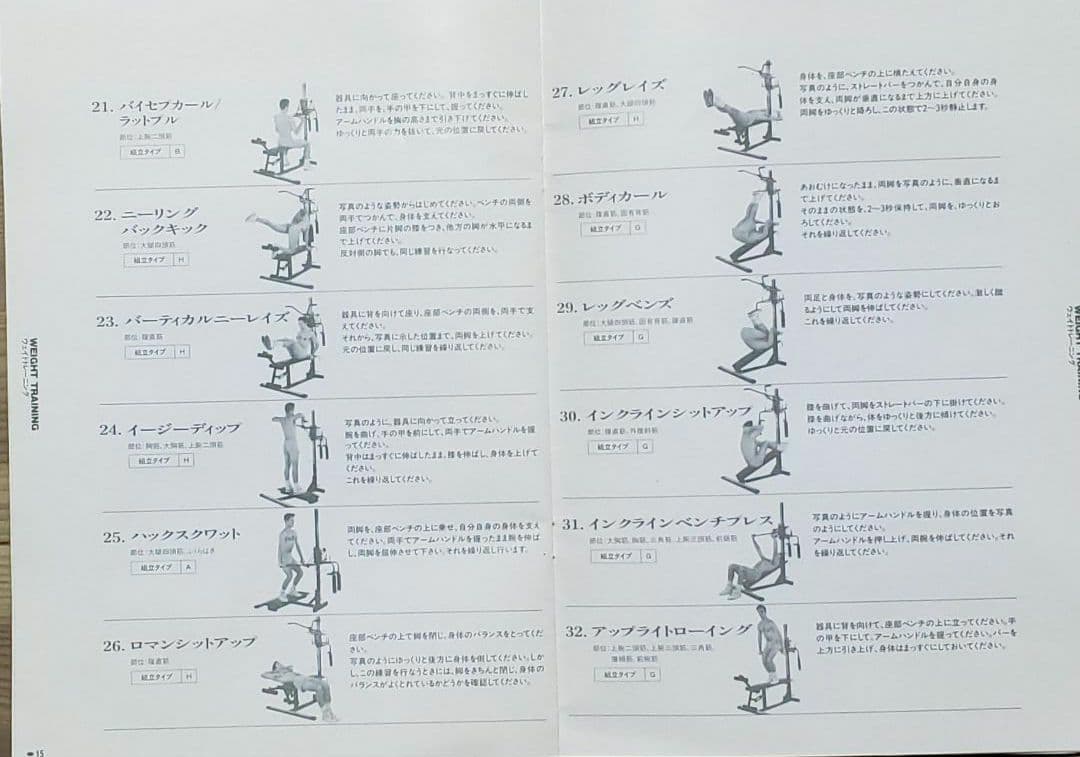 21. バイセプカール/
ラットプル
部位:上腕二頭筋
組立タイプ B
器具に向かって座ってください。背中をまっすぐに伸ばし
たまま、両手を、手の甲を下にして、握ってください。
アームハンドルを胸の高さまで引き下げてください。
ゆっくりと両手の力を抜いて、元の位置に戻してください。
22. ニーリング
バックキック
部位:大腿四頭筋
組立タイプ H
写真のような姿勢からはじめてください。ベンチの両側を
両手でつかんで、身体を支えてください。
座部ベンチに片脚の膝をつき、他方の脚が水平になるま
で上げてください。
反対側の脚でも、同じ練習を行なってください。
23. バーティカルニーレイズ
部位:腹直筋
組立タイプ H
器具に背を向けて座り、座部ベンチの両側を、両手で支
えてください。
それから、写真に示した位置まで、両脚を上げてください。
元の位置に戻し、同じ練習を繰り返してください。
24. イージーディップ
部位:胸筋、大胸筋、上腕二頭筋
組立タイプ H
写真のように、器具に向かって立ってください。
腕を曲げ、手の甲を前にして、両手でアームハンドルを握
ってください。
背中はまっすぐに伸ばしたまま、膝を伸ばし、身体を上げて
ください。
これを繰り返してください。
25. ハックスクワット
部位:大腿四頭筋、ふくらはぎ
組立タイプ A
両脚を、座部ベンチの上に乗せ、自分自身の身体を支え
てください。両手でアームハンドルを握ったまま腕を伸ば
し、両脚を屈伸させて下さい。それを繰り返し行います。
26. ロマンシットアップ
部位:腹直筋
組立タイプ H
座部ベンチの上で脚を閉じ、身体のバランスをとってくだ
さい。
写真のようにゆっくりと後方に身体を倒してください。しか
し、この練習を行なうときには、脚をきちんと閉じ、身体の
バランスがよくとれているかどうかを確認してください。
WEIGHT TRAINING
ウェイトトレーニング
15
27. レッグレイズ
部位:腹直筋、大腿四頭筋
組立タイプ H
身体を、座部ベンチの上に横たえてください。
写真のように、ストレートバーをつかんで、自分自身の身
体を支え、両脚が垂直になるまで上方に上げてください。
両脚をゆっくりと降ろし、この状態で2〜3秒静止します。
28. ボディカール
部位:腹直筋、固有背筋
組立タイプ G
あおむけになったまま、両脚を写真のように、垂直になるま
で上げてください。
そのままの状態を、2〜3秒保持して、両脚を、ゆっくりとお
ろしてください。
それを繰り返してください。
29. レッグベンズ
部位:大腿四頭筋、固有背筋、腹直筋
組立タイプ G
両足と身体を、写真のような姿勢にしてください。激しく蹴
るようにして両脚を伸ばしてください。
これを繰り返してください。
30. インクラインシットアップ
部位:腹直筋、外腹斜筋
組立タイプ G
膝を曲げて、両脚をストレートバーの下に掛けてください。
膝を曲げながら、体をゆっくりと後方に傾けてください。
ゆっくりと元の位置に戻してください。
31. インクラインベンチプレス
部位:大胸筋、胸筋、三角筋、上腕三頭筋、前鋸筋
組立タイプ G
写真のようにアームハンドルを握り、身体の位置を写真
のようにしてください。
アームハンドルを押し上げ、両腕を伸ばしてください。それ
を繰り返してください。
32. アップライトローイング
部位:上腕二頭筋、上腕三頭筋、三角筋、
僧帽筋、前腕筋
組立タイプ G
器具に背を向けて、座部ベンチの上に立ってください。手
の甲を下にして、アームハンドルを握ってください。バーを
上方に引き上げ、身体はまっすぐにしておいてください。
WEIGHT TRAINING
ウェイトトレーニング